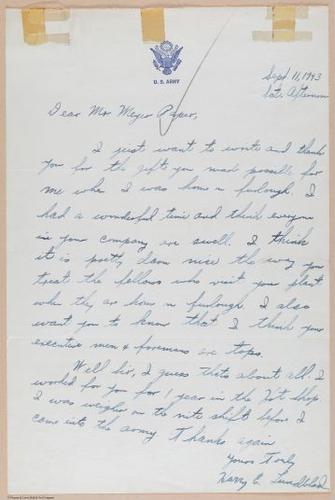 U. S. ARMY
Sept 11, 1943
Sat. Afternoon
Dear Mr. Meyer Piper,
I just want to write and thank
you for the gifts you made possible for
me when I was home on furlough. I
had a wonderful time and think everyone
in your company are swell. I think
it is pretty damn nice the way you
treat the fellows who visit your plant
when they are home on furlough. I also
want you to know that I think your
executive men & foremans are tops.
Well sir, I guess thats about all. I
worked for you for 1 year in the
I was weigher on the nite shift before I
came into the army. Thanks again
Yours Truly
Harry C. Lundblad